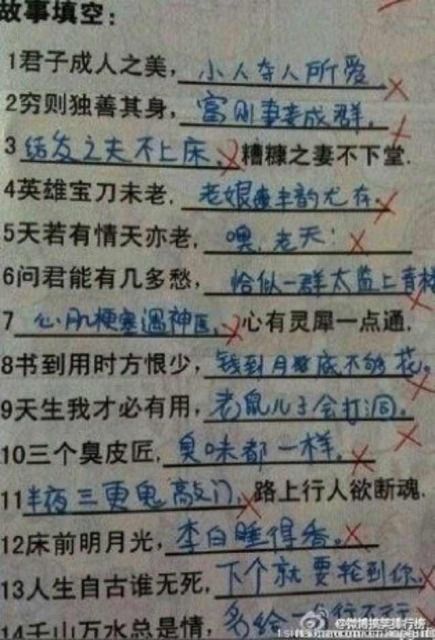 故事填空：
1君子成人之美，小人夺人所爱
2穷则独善其身，富则妻妾成群，
3结发之夫不上床，糟糠之妻不下堂.
4英雄宝刀未老，老娘丰韵尤存，
5天若有情天亦老，噢，老天！
6问君能有几多愁，恰似一群太监上青楼
7心肌梗塞遇神医，心有灵犀一点通.
8书到用时方恨少，钱到月底不够花。
9天生我才必有用，老鼠儿子会打洞。
10三个臭皮匠，臭味都一样。
11半夜三更鬼敲门，路上行人欲断魂.
12床前明月光，李白睡得香。
13人生自古谁无死，下个就要轮到你.
14千山万水总是情，多给一
@微博搞笑排行榜